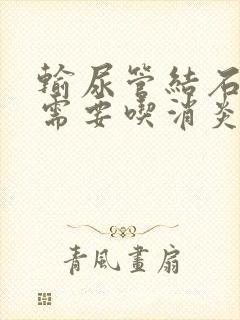 輸尿管結石
需要喫消炎
青風畫扇